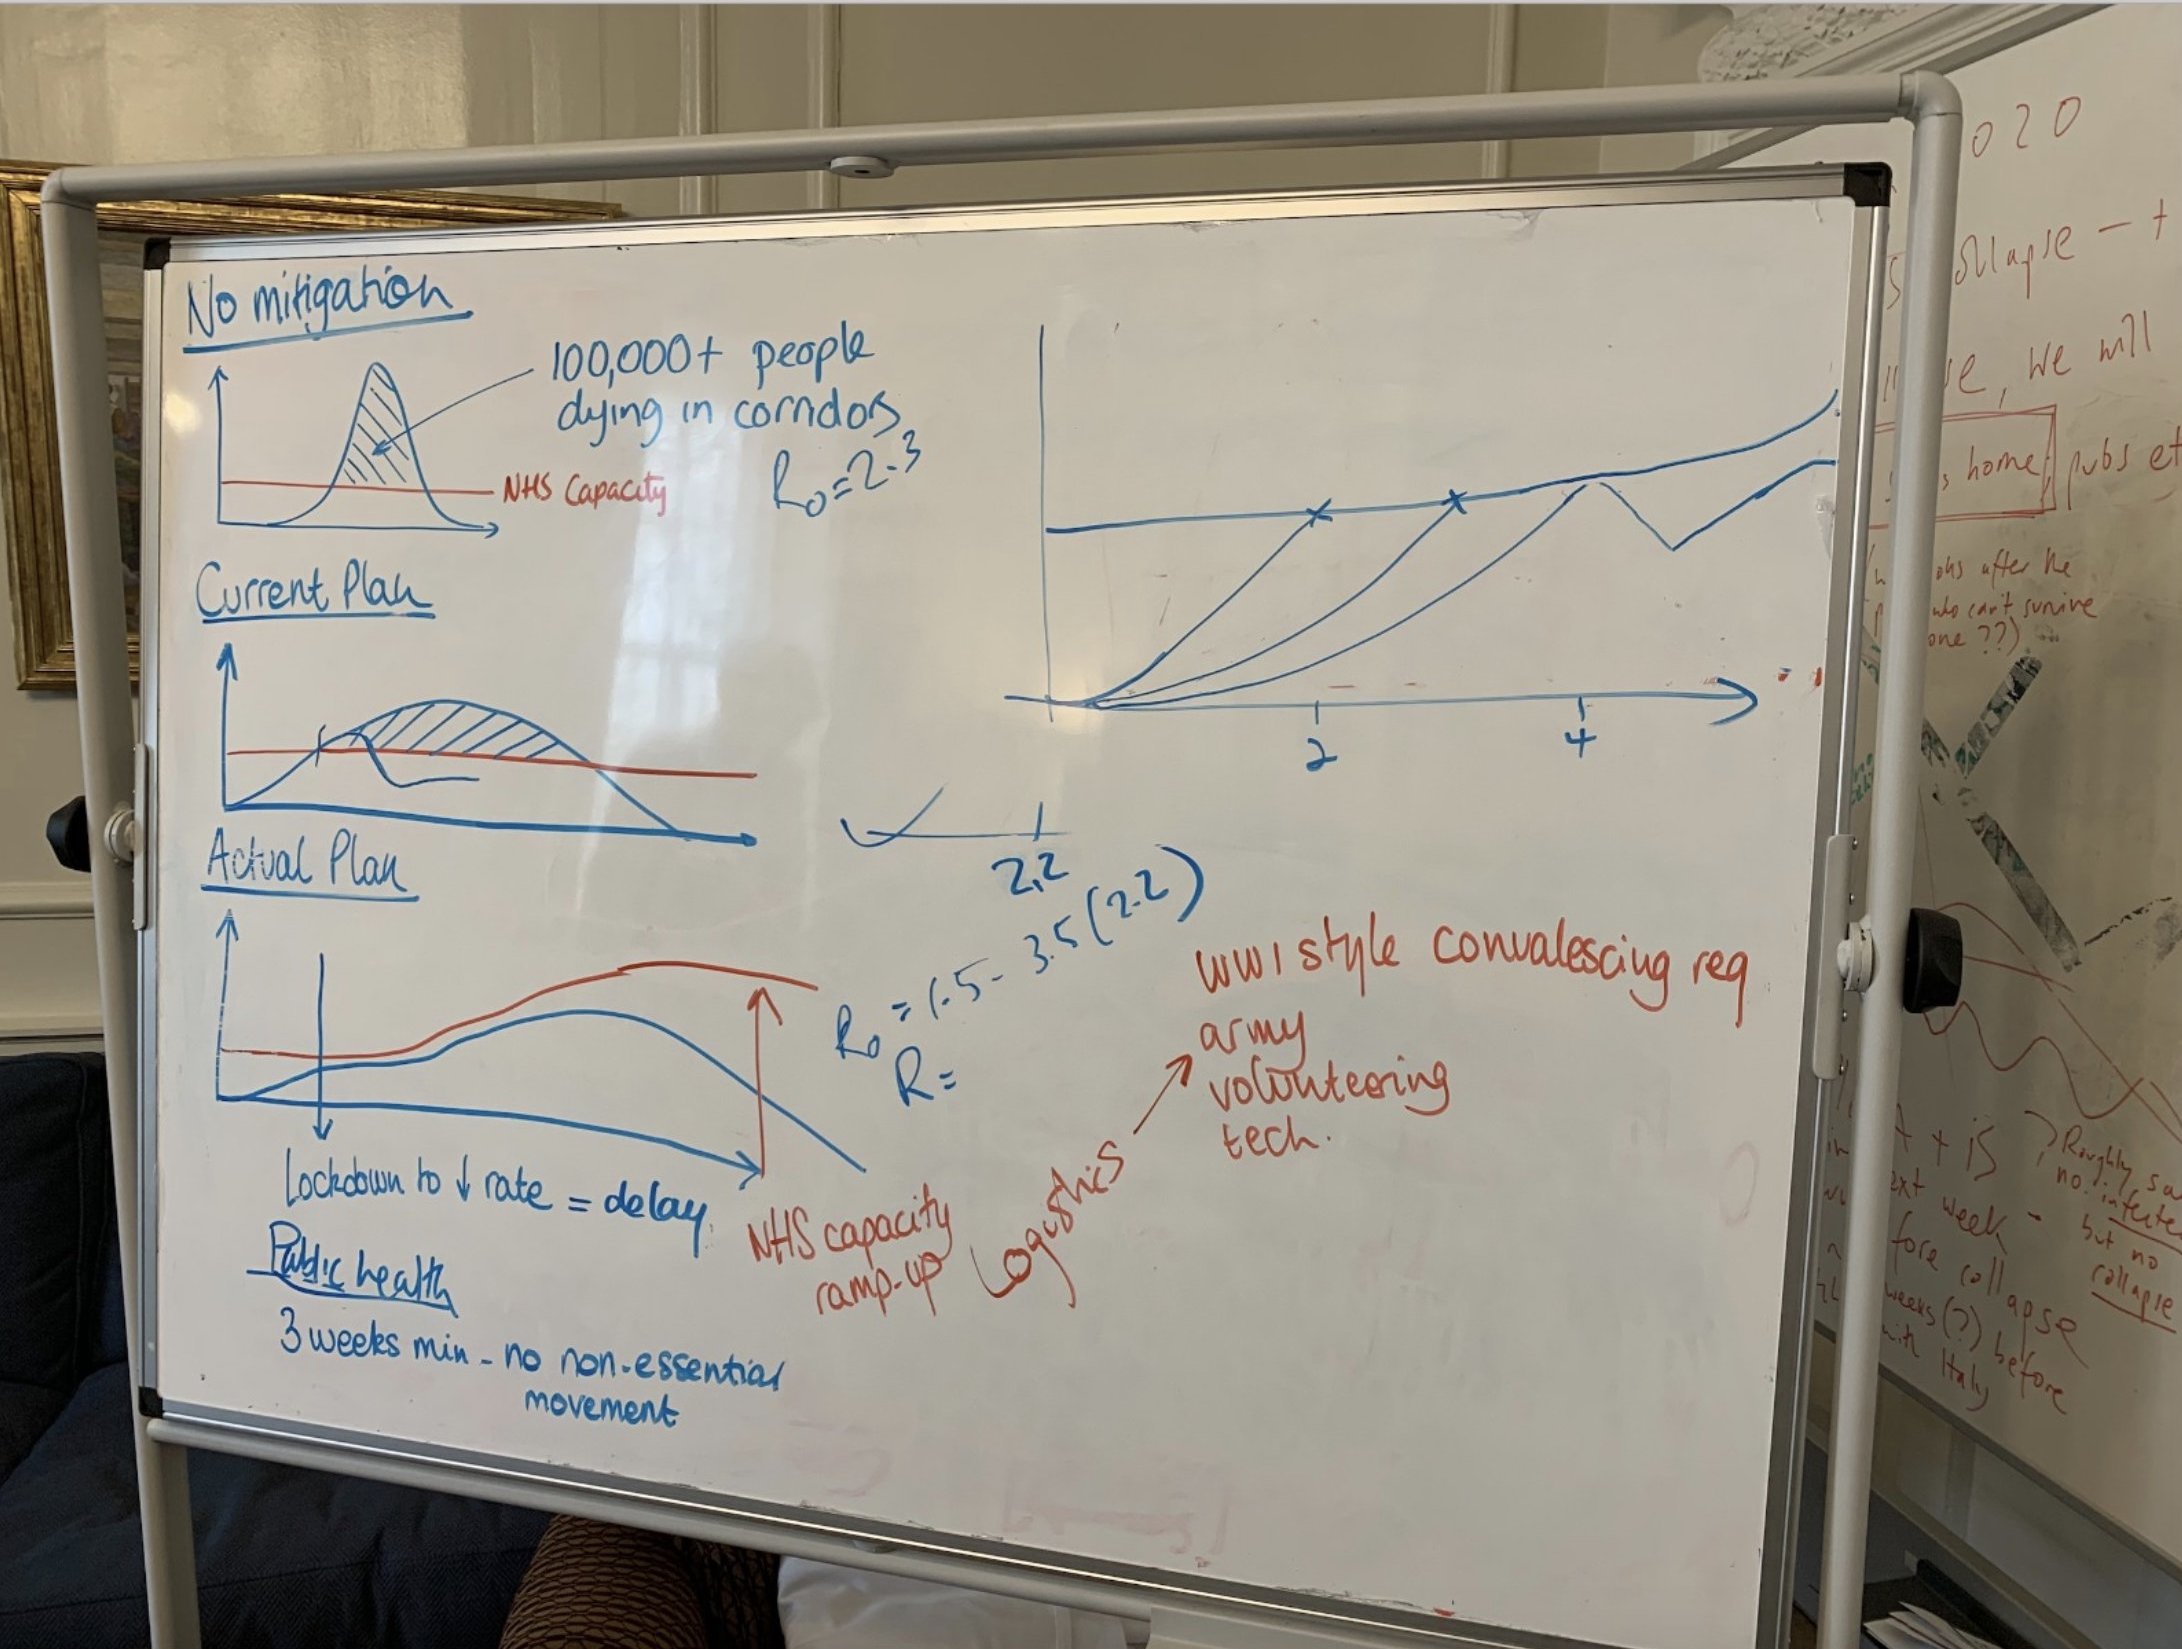 No mitigation
100,000+ people
dying in corridors
NHS Capacity
R0=2-3
Current Plan
2
4
Actual Plan
2.2
R0 = 1.5- 3.5 (2.2)
R=
Lockdown to ↓ rate = delay
Public health
3 weeks min - no non-essential
movement
NHS capacity
ramp-up
Logistics
WW1 style convalescing req
army
volunteering
tech.
020
collapse -
we will
home pubs
after the
who can't survive
one ??)
+ is
Roughly
no. infecte
week - but no
collapse
fore collapse
weeks (?) before
with Italy